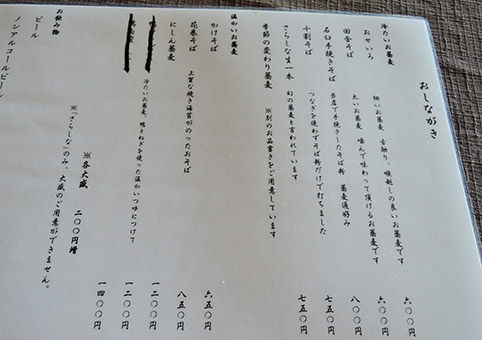 おしながき
冷たいお蕎麦
おせいろ 細いお蕎麦 舌触り、喉越しの良いお蕎麦です 六〇〇円
田舎そば 太いお蕎麦 噛んで味わって頂けるお蕎麦です 六〇〇円
石臼手挽きそば 当店で手挽きしたそば粉 蕎麦通好み 八〇〇円
十割そば つなぎを使わずそば粉だけで打ちました 七五〇円
さらしな生一本 幻の蕎麦と言われています 七五〇円
季節の変わり蕎麦 ※別のお品書きをご用意しています
温かいお蕎麦
かけそば 六五〇円
花巻そば 上質な焼き海苔がのったおそば 八五〇円
にしん蕎麦 一二〇〇円
冷たいお蕎麦、鴨とねぎを使った温かいつゆにつけて 一二〇〇円
一四〇〇円
※各大盛 二〇〇円増
※「さらしな」のみ、大盛のご用意ができません。
お飲み物
ビール
ノンアルコールビール